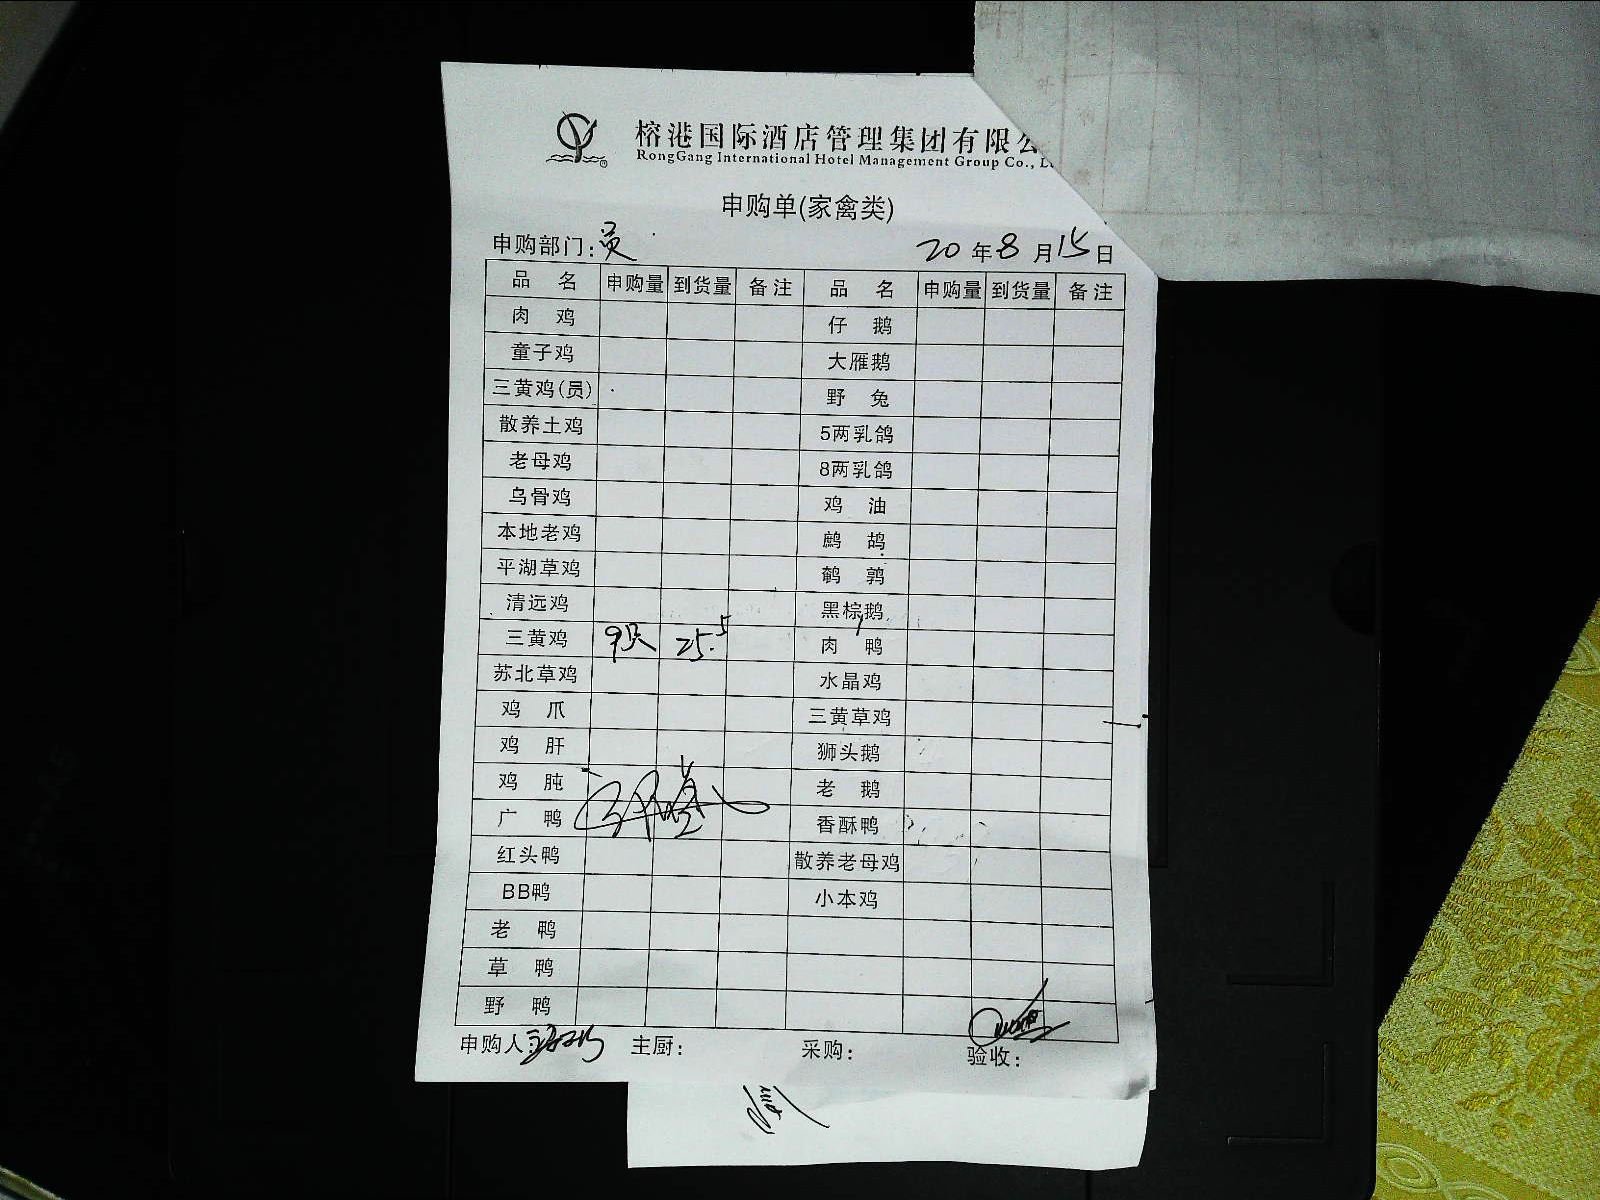 榕港国际酒店管理集团有限公
RongGang International Hotel Management Group Co., L
申购单(家禽类)
申购部门:员 20年8月15日
品 名 申购量 到货量 备注 品 名 申购量 到货量 备注
肉 鸡 仔 鹅
童子鸡 大雁鹅
三黄鸡(员) 野 兔
散养土鸡 5两乳鸽
老母鸡 8两乳鸽
乌骨鸡 鸡 油
本地老鸡 鹧 鸪
平湖草鸡 鹌 鹑
清远鸡 黑棕鹅
三黄鸡 9只 25.5 肉 鸭
苏北草鸡 水晶鸡
鸡 爪 三黄草鸡
鸡 肝 狮头鹅
鸡 肫 老 鹅
广 鸭 香酥鸭
红头鸭 散养老母鸡
BB鸭 小本鸡
老 鸭
草 鸭
野 鸭
申购人: 主厨: 采购: 验收: